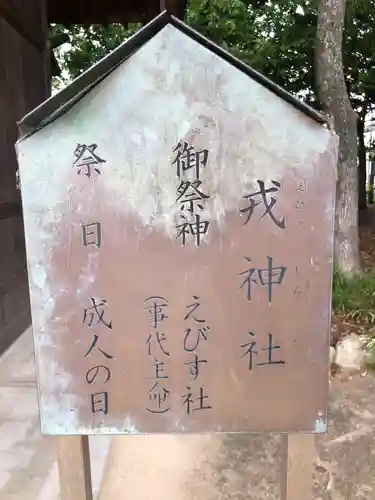 戎神社
えびす じん
御祭神
えびす社
(事代主命)
祭日
成人の日